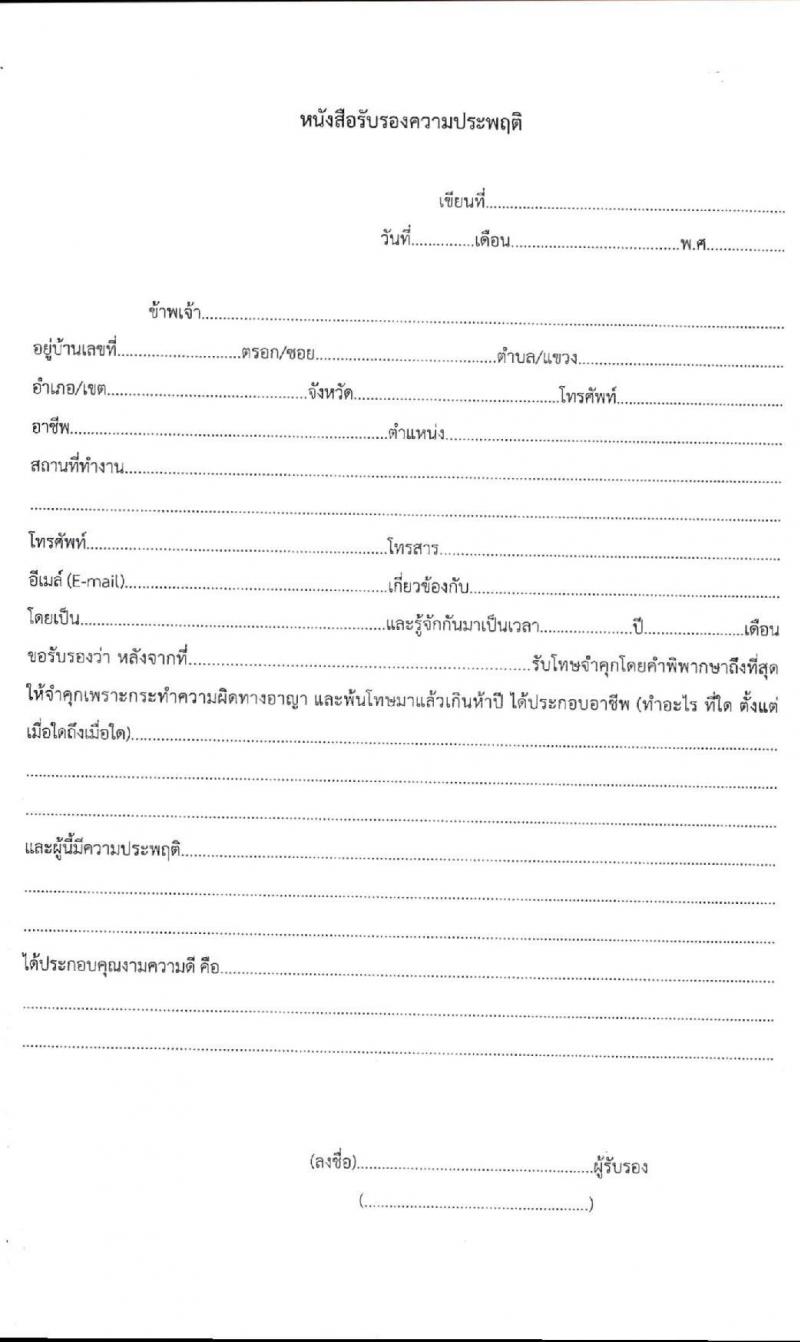 หนังสือรับรองความประพฤติ
เขียนที่..............................
วันที่...............เดือน..............................พ.ศ...................
ข้าพเจ้า..............................
อยู่บ้านเลขที่..............................ตรอก/ซอย..............................ตำบล/แขวง..............................
อำเภอ/เขต..............................จังหวัด..............................โทรศัพท์..............................
อาชีพ..............................ตำแหน่ง..............................
สถานที่ทำงาน..............................
..............................
โทรศัพท์..............................โทรสาร..............................
อีเมล์ (E-mail)..............................เกี่ยวข้องกับ..............................
โดยเป็น..............................และรู้จักกันมาเป็นเวลา....................ปี....................เดือน
ขอรับรองว่า หลังจากที่..............................รับโทษจำคุกโดยคำพิพากษาถึงที่สุด
ให้จำคุกเพราะกระทำความผิดทางอาญา และพ้นโทษมาแล้วเกินห้าปี ได้ประกอบอาชีพ (ทำอะไร ที่ใด ตั้งแต่
เมื่อใดถึงเมื่อใด)..............................
..............................
..............................
และผู้นี้มีความประพฤติ..............................
..............................
..............................
ได้ประกอบคุณงามความดี คือ..............................
..............................
..............................
(ลงชื่อ)..............................ผู้รับรอง
(..............................)